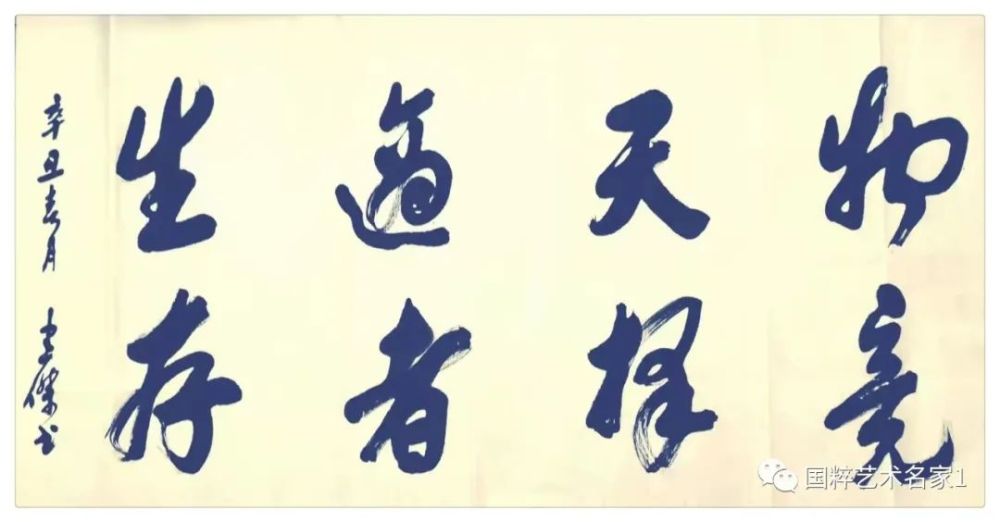 物竞
天择
適者
生存
辛丑春月
杰书
国粹艺术名家1